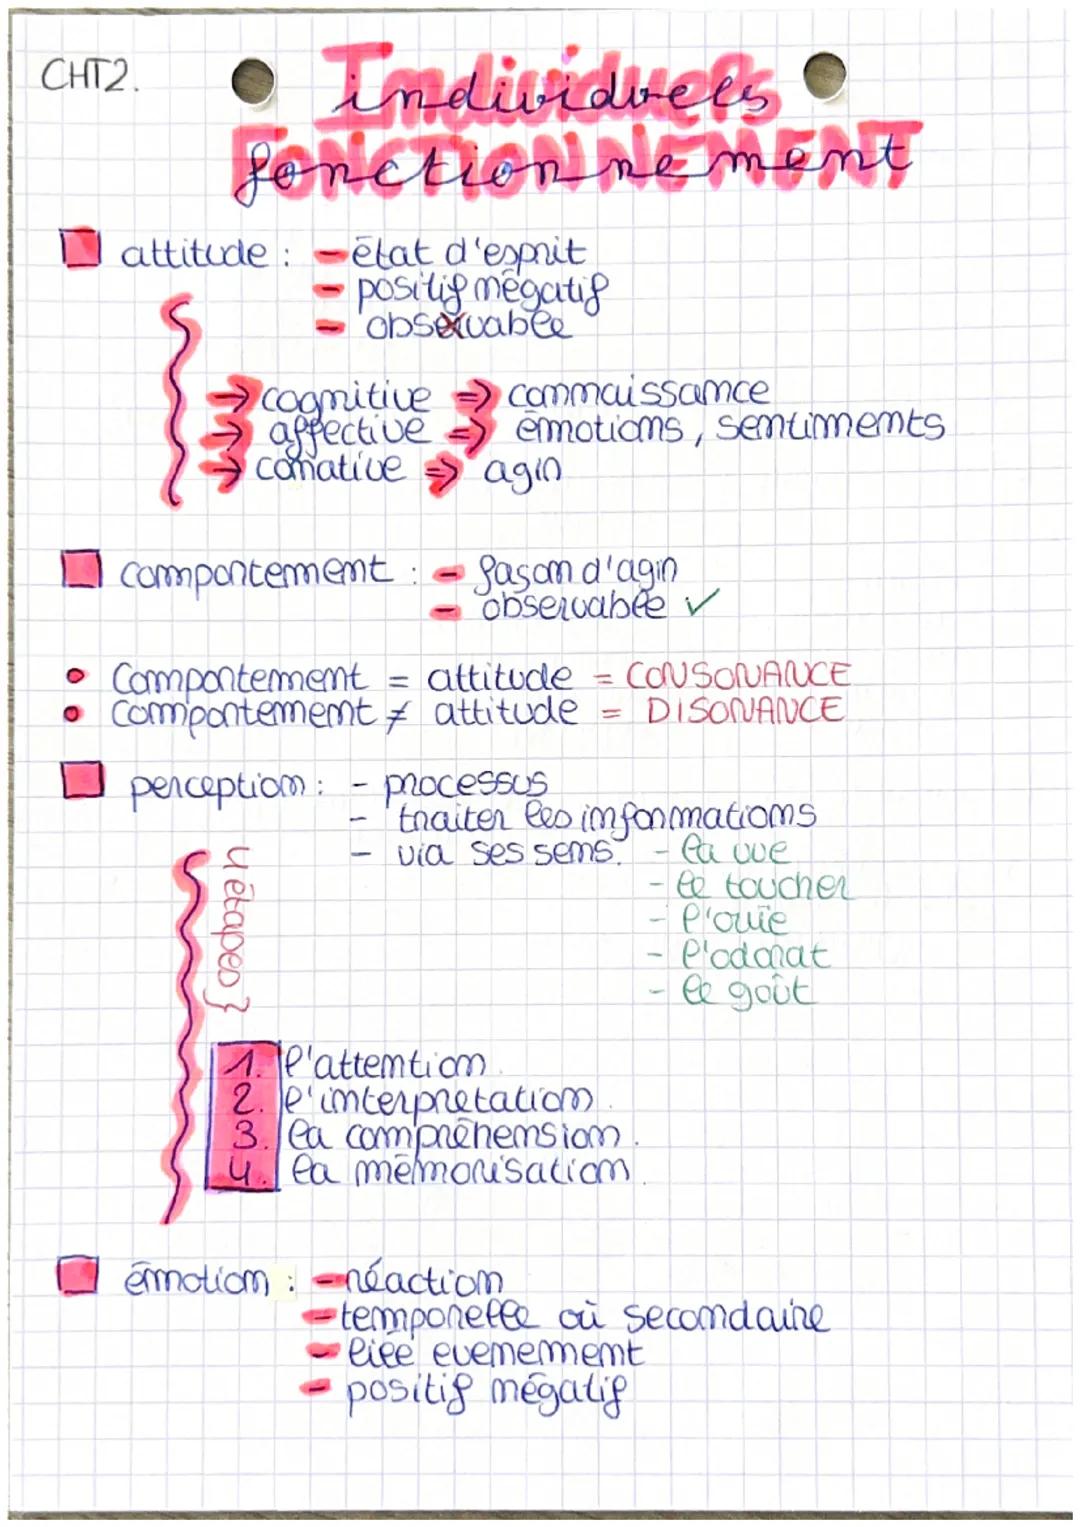 CHT2.
Individuels
FONCTIONNEMENT
attitude : - état d'esprit
- positif négatif
- observable
→ cognitive => connaissance
→ affective => émotions, sentiments
→ conative => agir
comportement : - façon d'agir
- observable ✓
• Comportement = attitude = CONSONANCE
• Comportement ≠ attitude = DISONANCE
perception : - processus
- traiter les informations
- via ses sens. - la vue
- le toucher
- l'ouïe
- l'odorat
- le goût
4 étapes }
1. l'attention.
2. l'interprétation.
3. la compréhension.
4. la mémorisation.
émotion : - réaction
- temporelle où secondaire
- liée evenement
- positif négatif